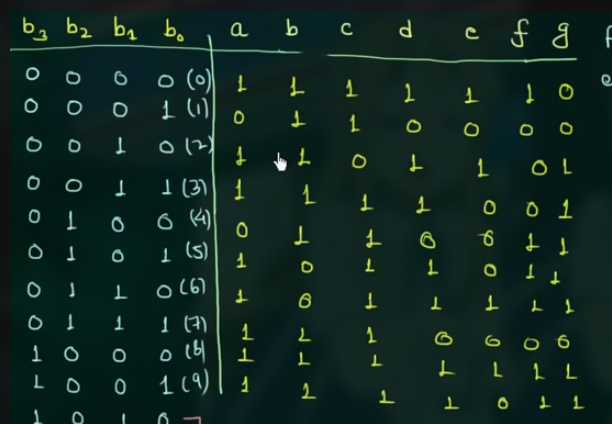 b3 b2 b1 b0 a b c d e f g f
0 0 0 0 (0) 1 1 1 1 1 1 0 e
0 0 0 1 (1) 0 1 1 0 0 0 0
0 0 1 0 (2) 1 1 0 1 1 0 1
0 0 1 1 (3) 1 1 1 1 0 0 1
0 1 0 0 (4) 0 1 1 0 0 1 1
0 1 0 1 (5) 1 0 1 1 0 1 1
0 1 1 0 (6) 1 0 1 1 1 1 1
0 1 1 1 (7) 1 1 1 0 0 0 0
1 0 0 0 (8) 1 1 1 1 1 1 1
1 0 0 1 (9) 1 1 1 1 0 1 1
1 0 1 0